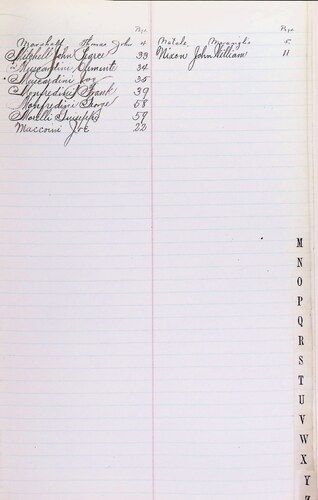 Page
Marshall Thomas John 4
Mitchell John Pearce 33
Muccardine Clement 34
Muccardini Joe 35
Monfredini Frank 39
Monfredini George 58
Morelli Guiseppi 59
Maccorini Joe 22
Page
Natale, 5
Nixon John William 11
M
N
O
P
Q
R
S
T
U
V
W
X
Y
Z